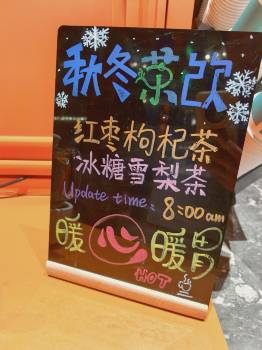 秋冬茶饮
红枣枸杞茶
冰糖雪梨茶
Update time: 8:00am
暖心暖胃
HOT